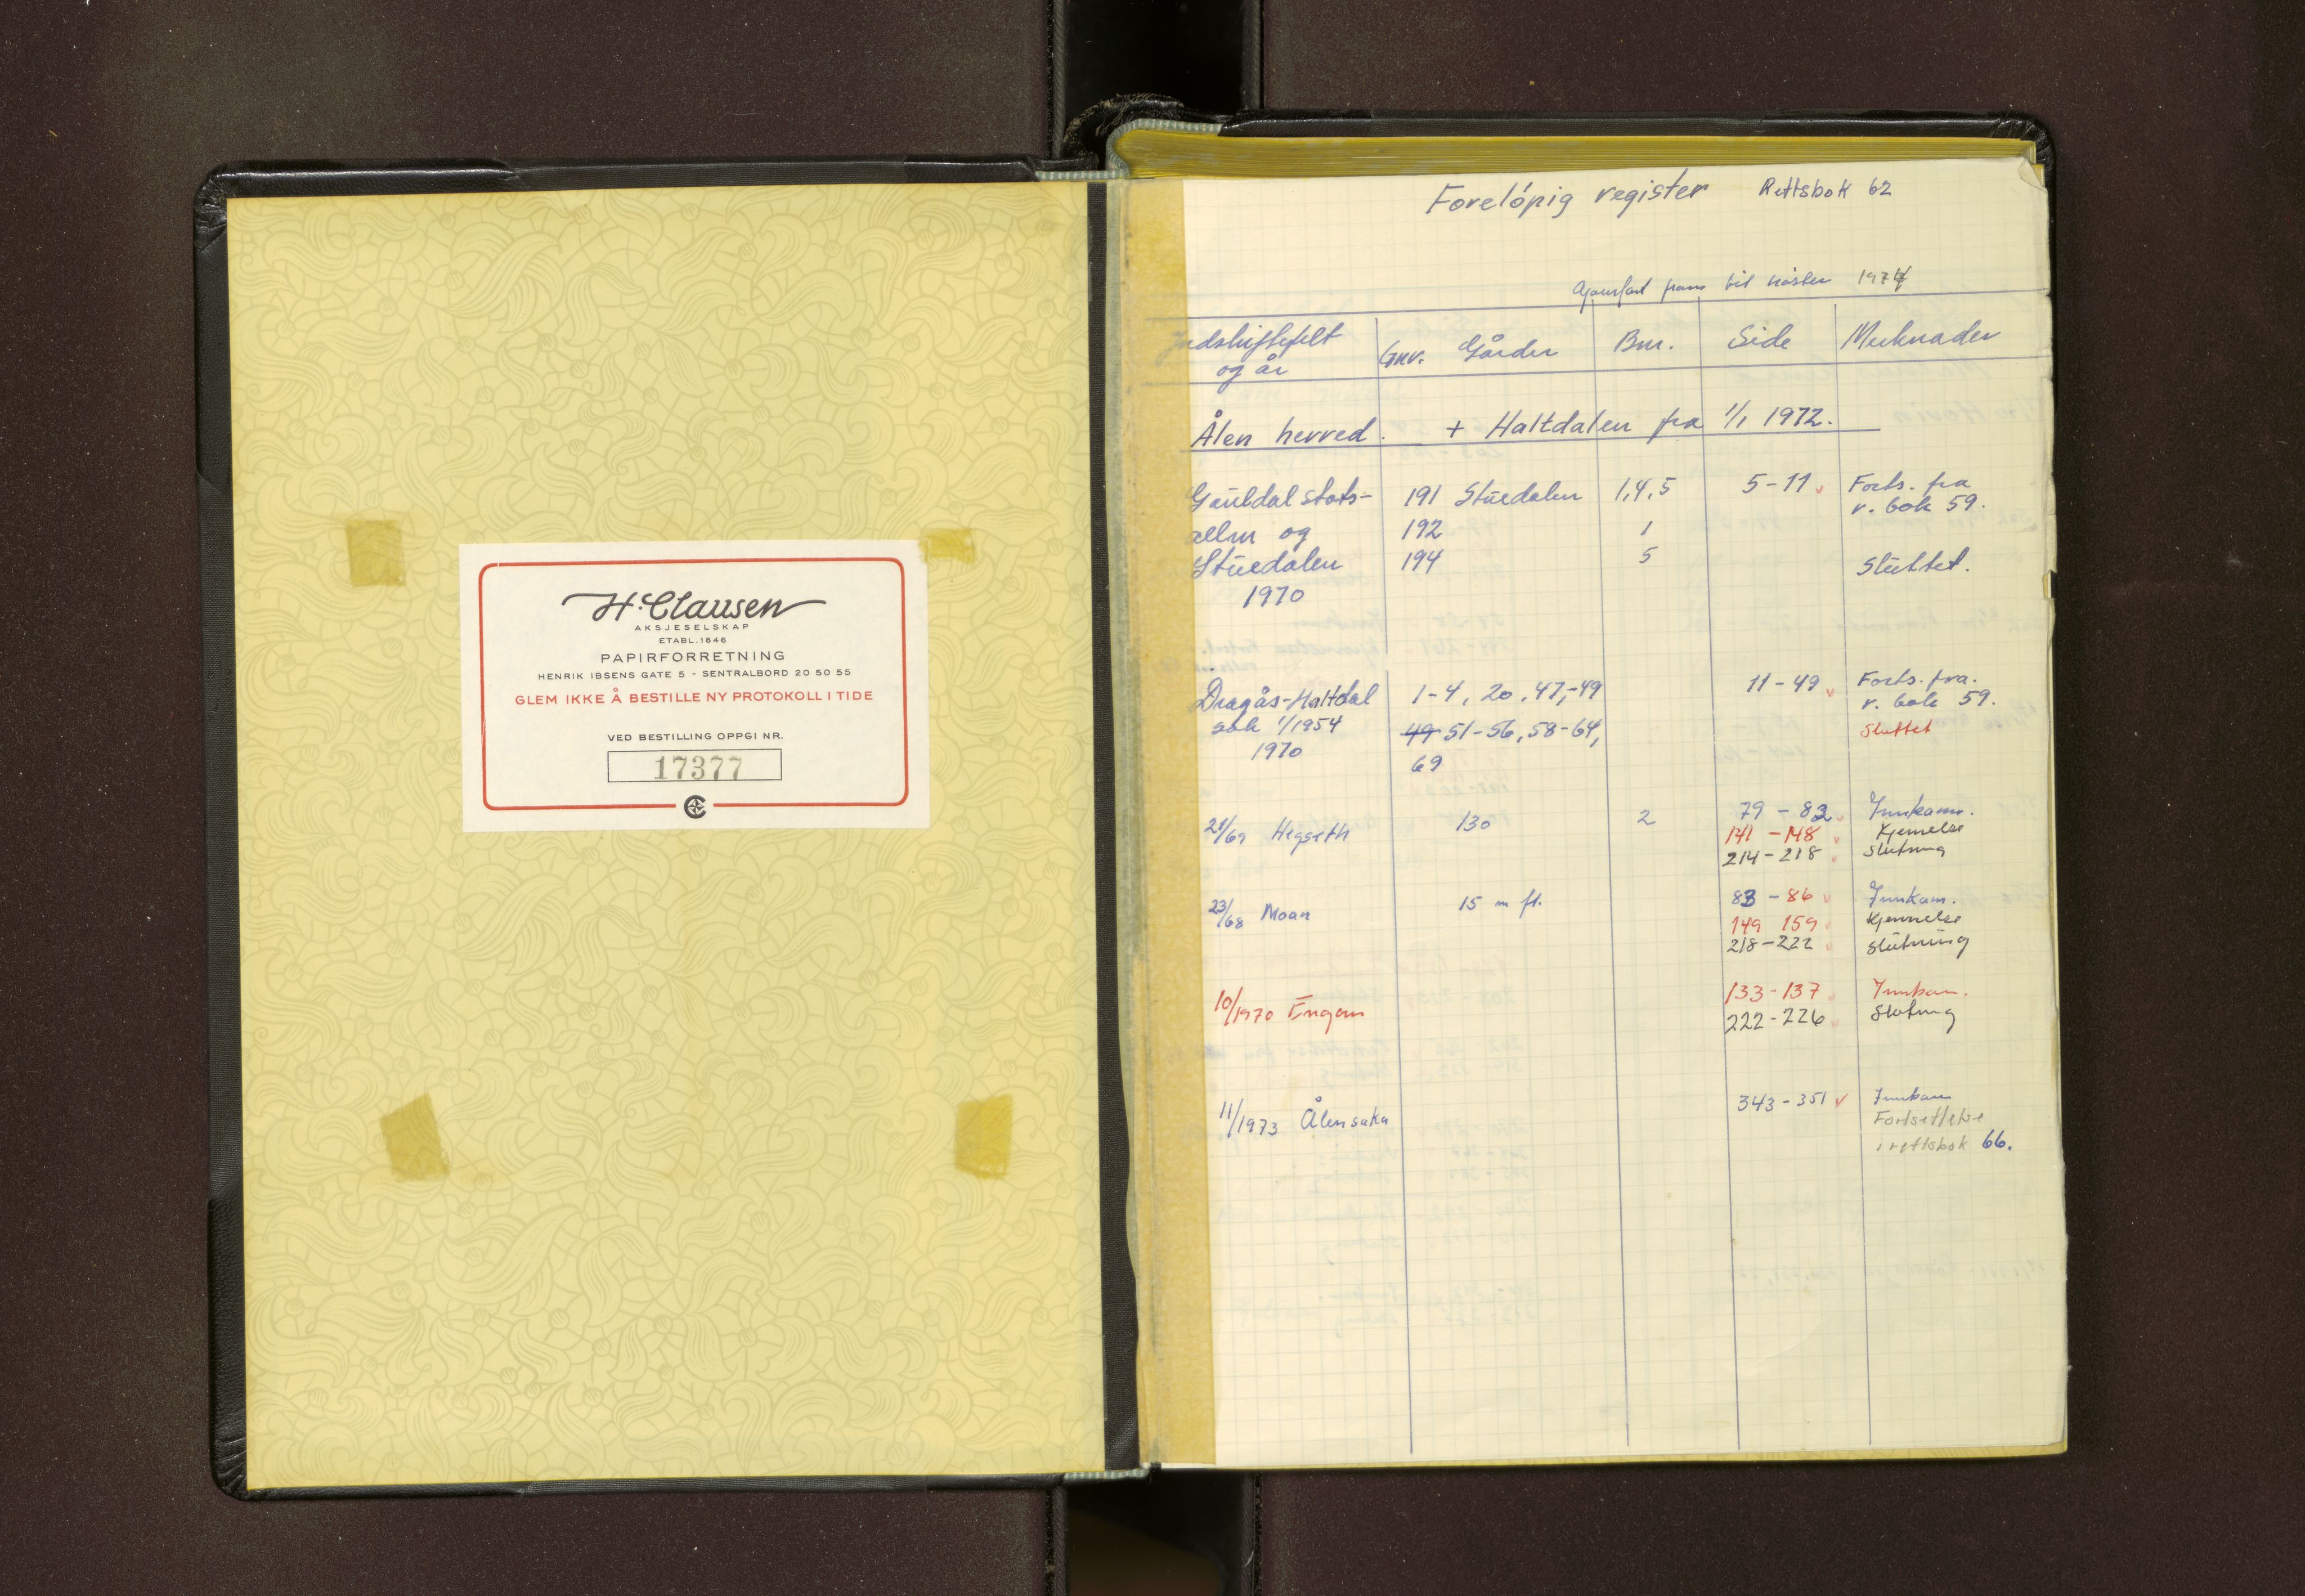 H. Clausen
AKSJESELSKAP
ETABL. 1846
PAPIRFORRETNING
HENRIK IBSENS GATE 5 - SENTRALBORD 20 50 55
GLEM IKKE Å BESTILLE NY PROTOKOLL I TIDE
VED BESTILLING OPPGI NR.
17377
Foreløpig register Rettsbok 62
Ajourført fram til høsten 1974
Jordskiftefelt Gnr. Gårder Bnr. Side Merknader
og år
Ålen herred. + Haltdalen fra 1/1 1972.
Gauldal stats- 191 Stuedalen 1,4,5 5-11 Forts. fra
r. bok 59.
allm og 192 1
Stuedalen 194 5 Sluttet.
1970
Dragås-Haltdal 1-4, 20, 47,-49 11-49 Forts. fra.
r. bok 59.
sak 1/1954 49 51-56, 58-64, Sluttet
1970 69
21/69 Hegseth 130 2 79-82 Innkam.
141-148 Kjennelse
214-218 Slutning
23/68 Moan 15 m fl. 83-86 Innkam.
149 159 Kjennelse
218-222 Slutning
10/1970 Engan 133-137 Innkam.
222-226 Slutning
11/1973 Ålensaka 343-351 Innkam
Fortsettelse
i rettsbok 66.